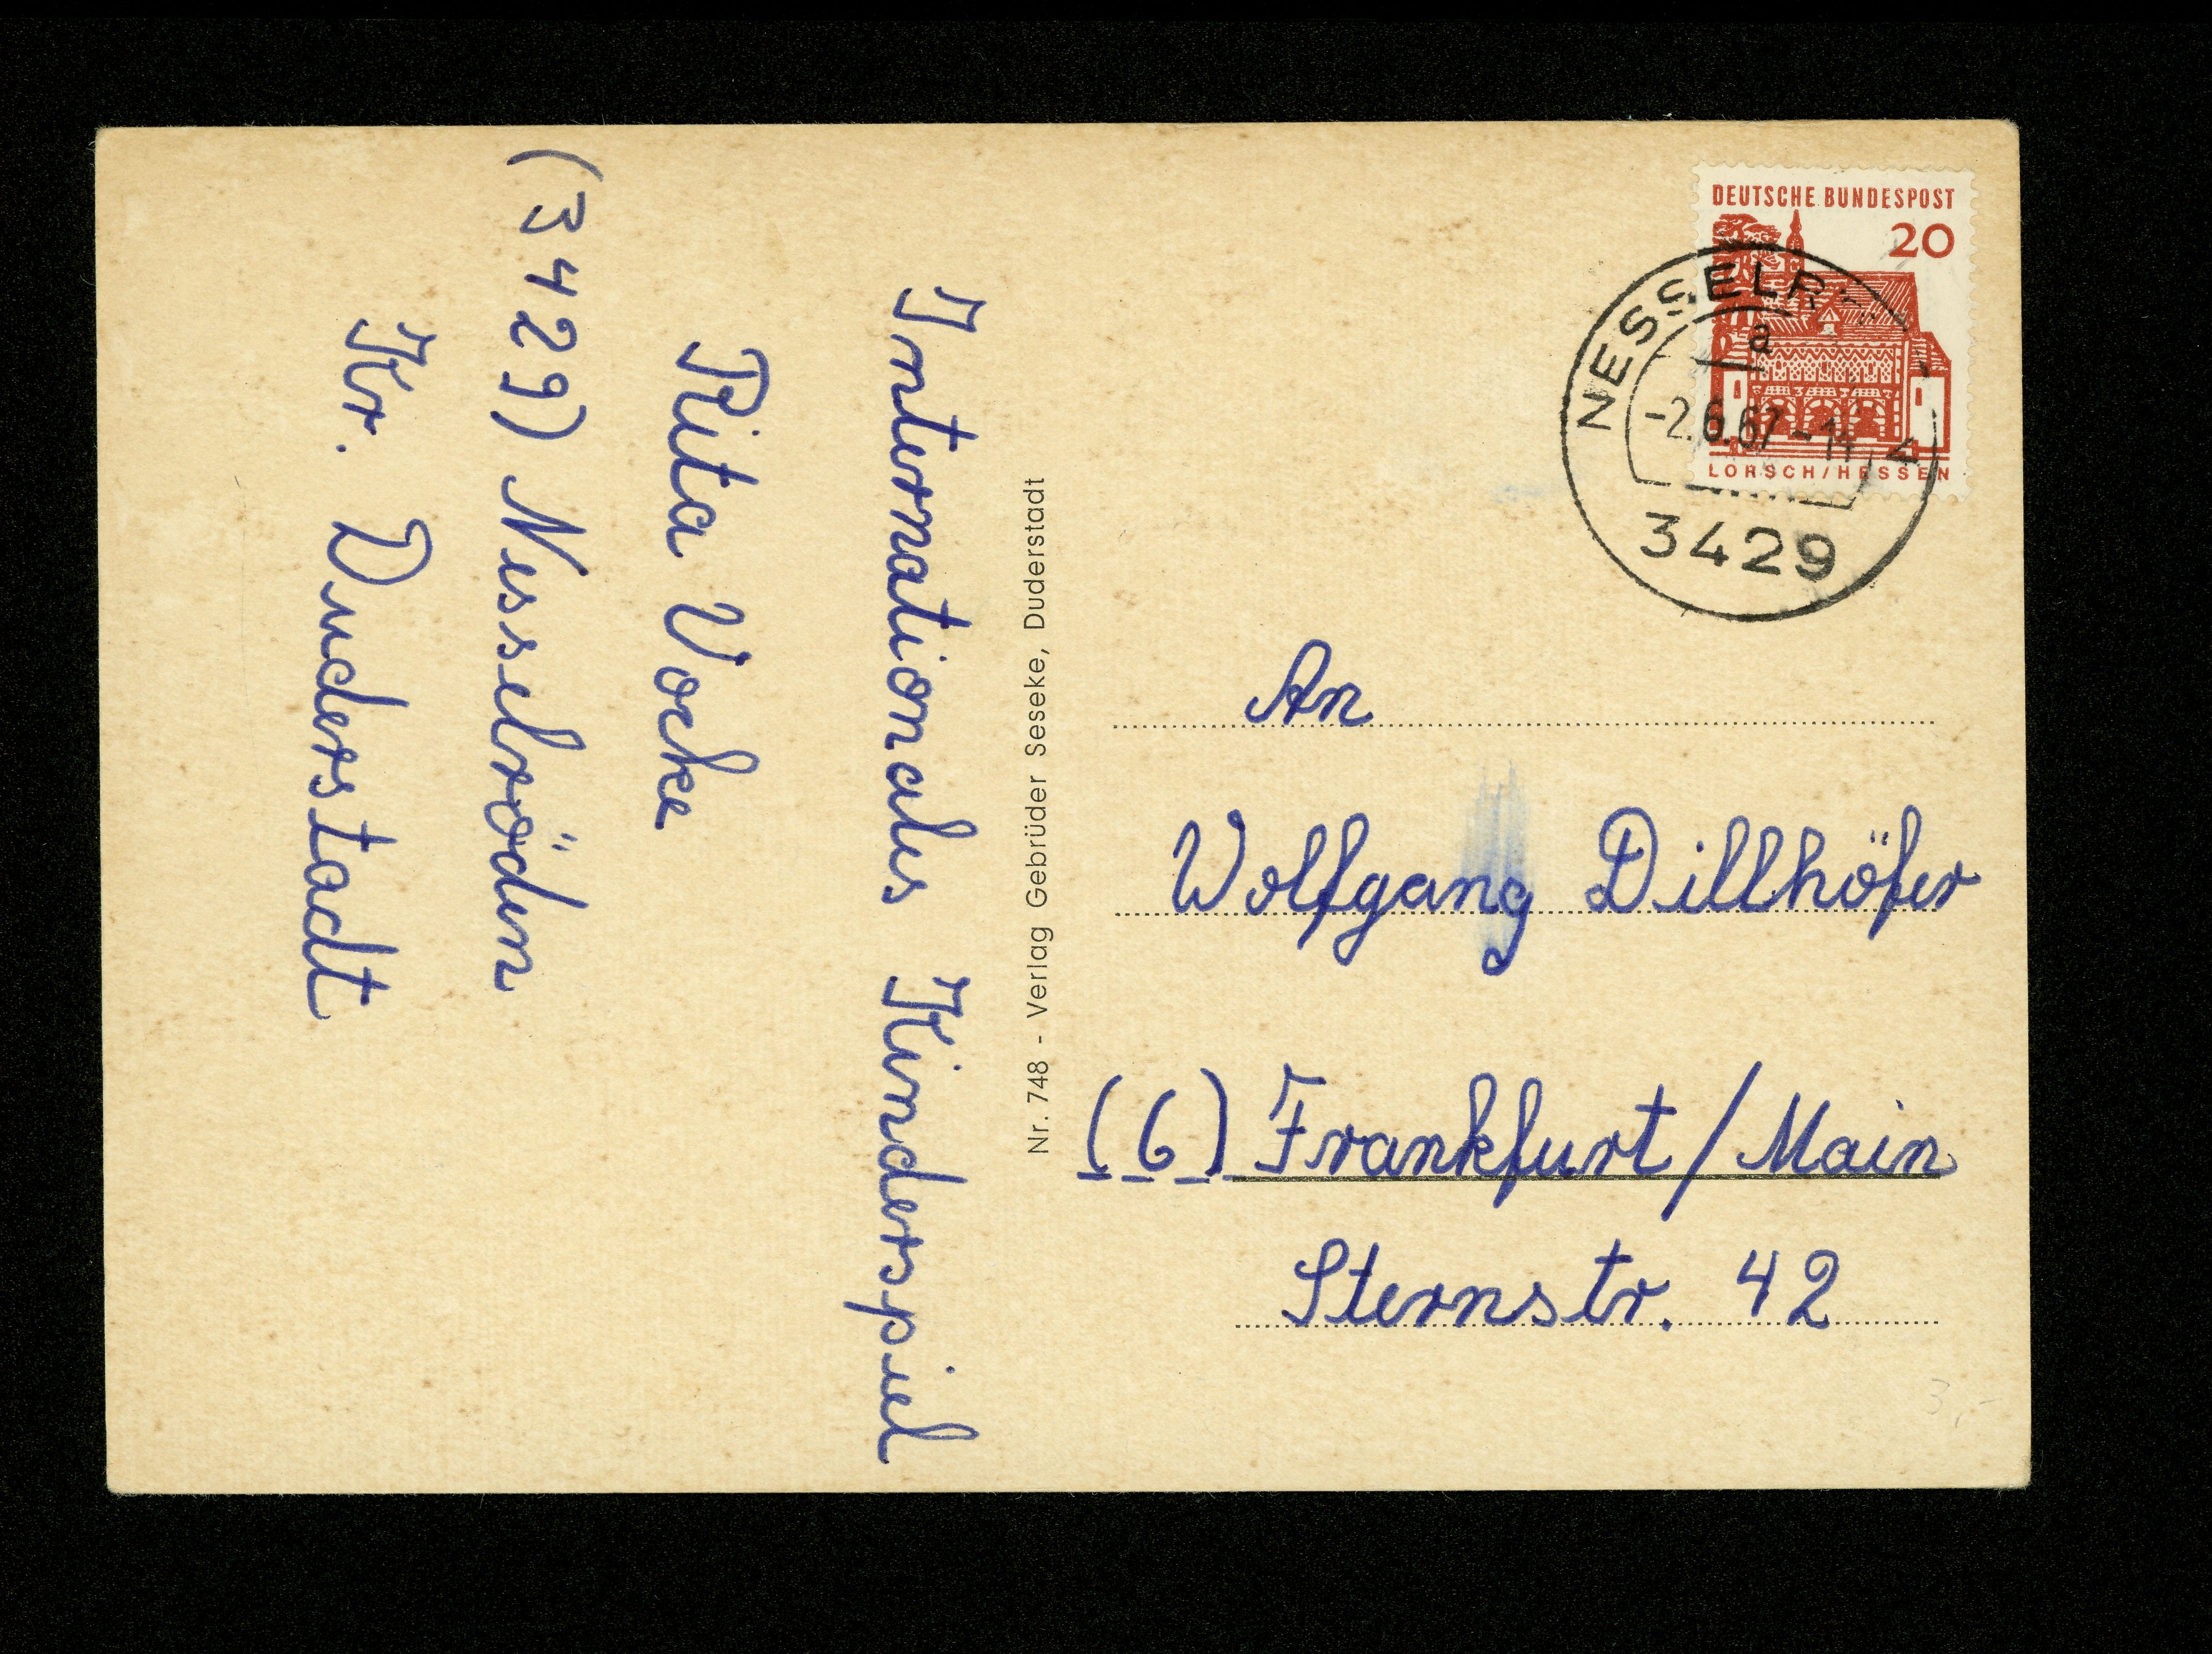 Internationales Kinderspiel
Rita Vocke
(3429) Nesselröden
Kr. Duderstadt
Nr. 748 - Verlag Gebrüder Seseke, Duderstadt
DEUTSCHE BUNDESPOST
20
LORSCH/HESSEN
a
-2.6.67-
3429
An
Wolfgang Dillhöfer
(6) Frankfurt/Main
Sternstr. 42
3,-